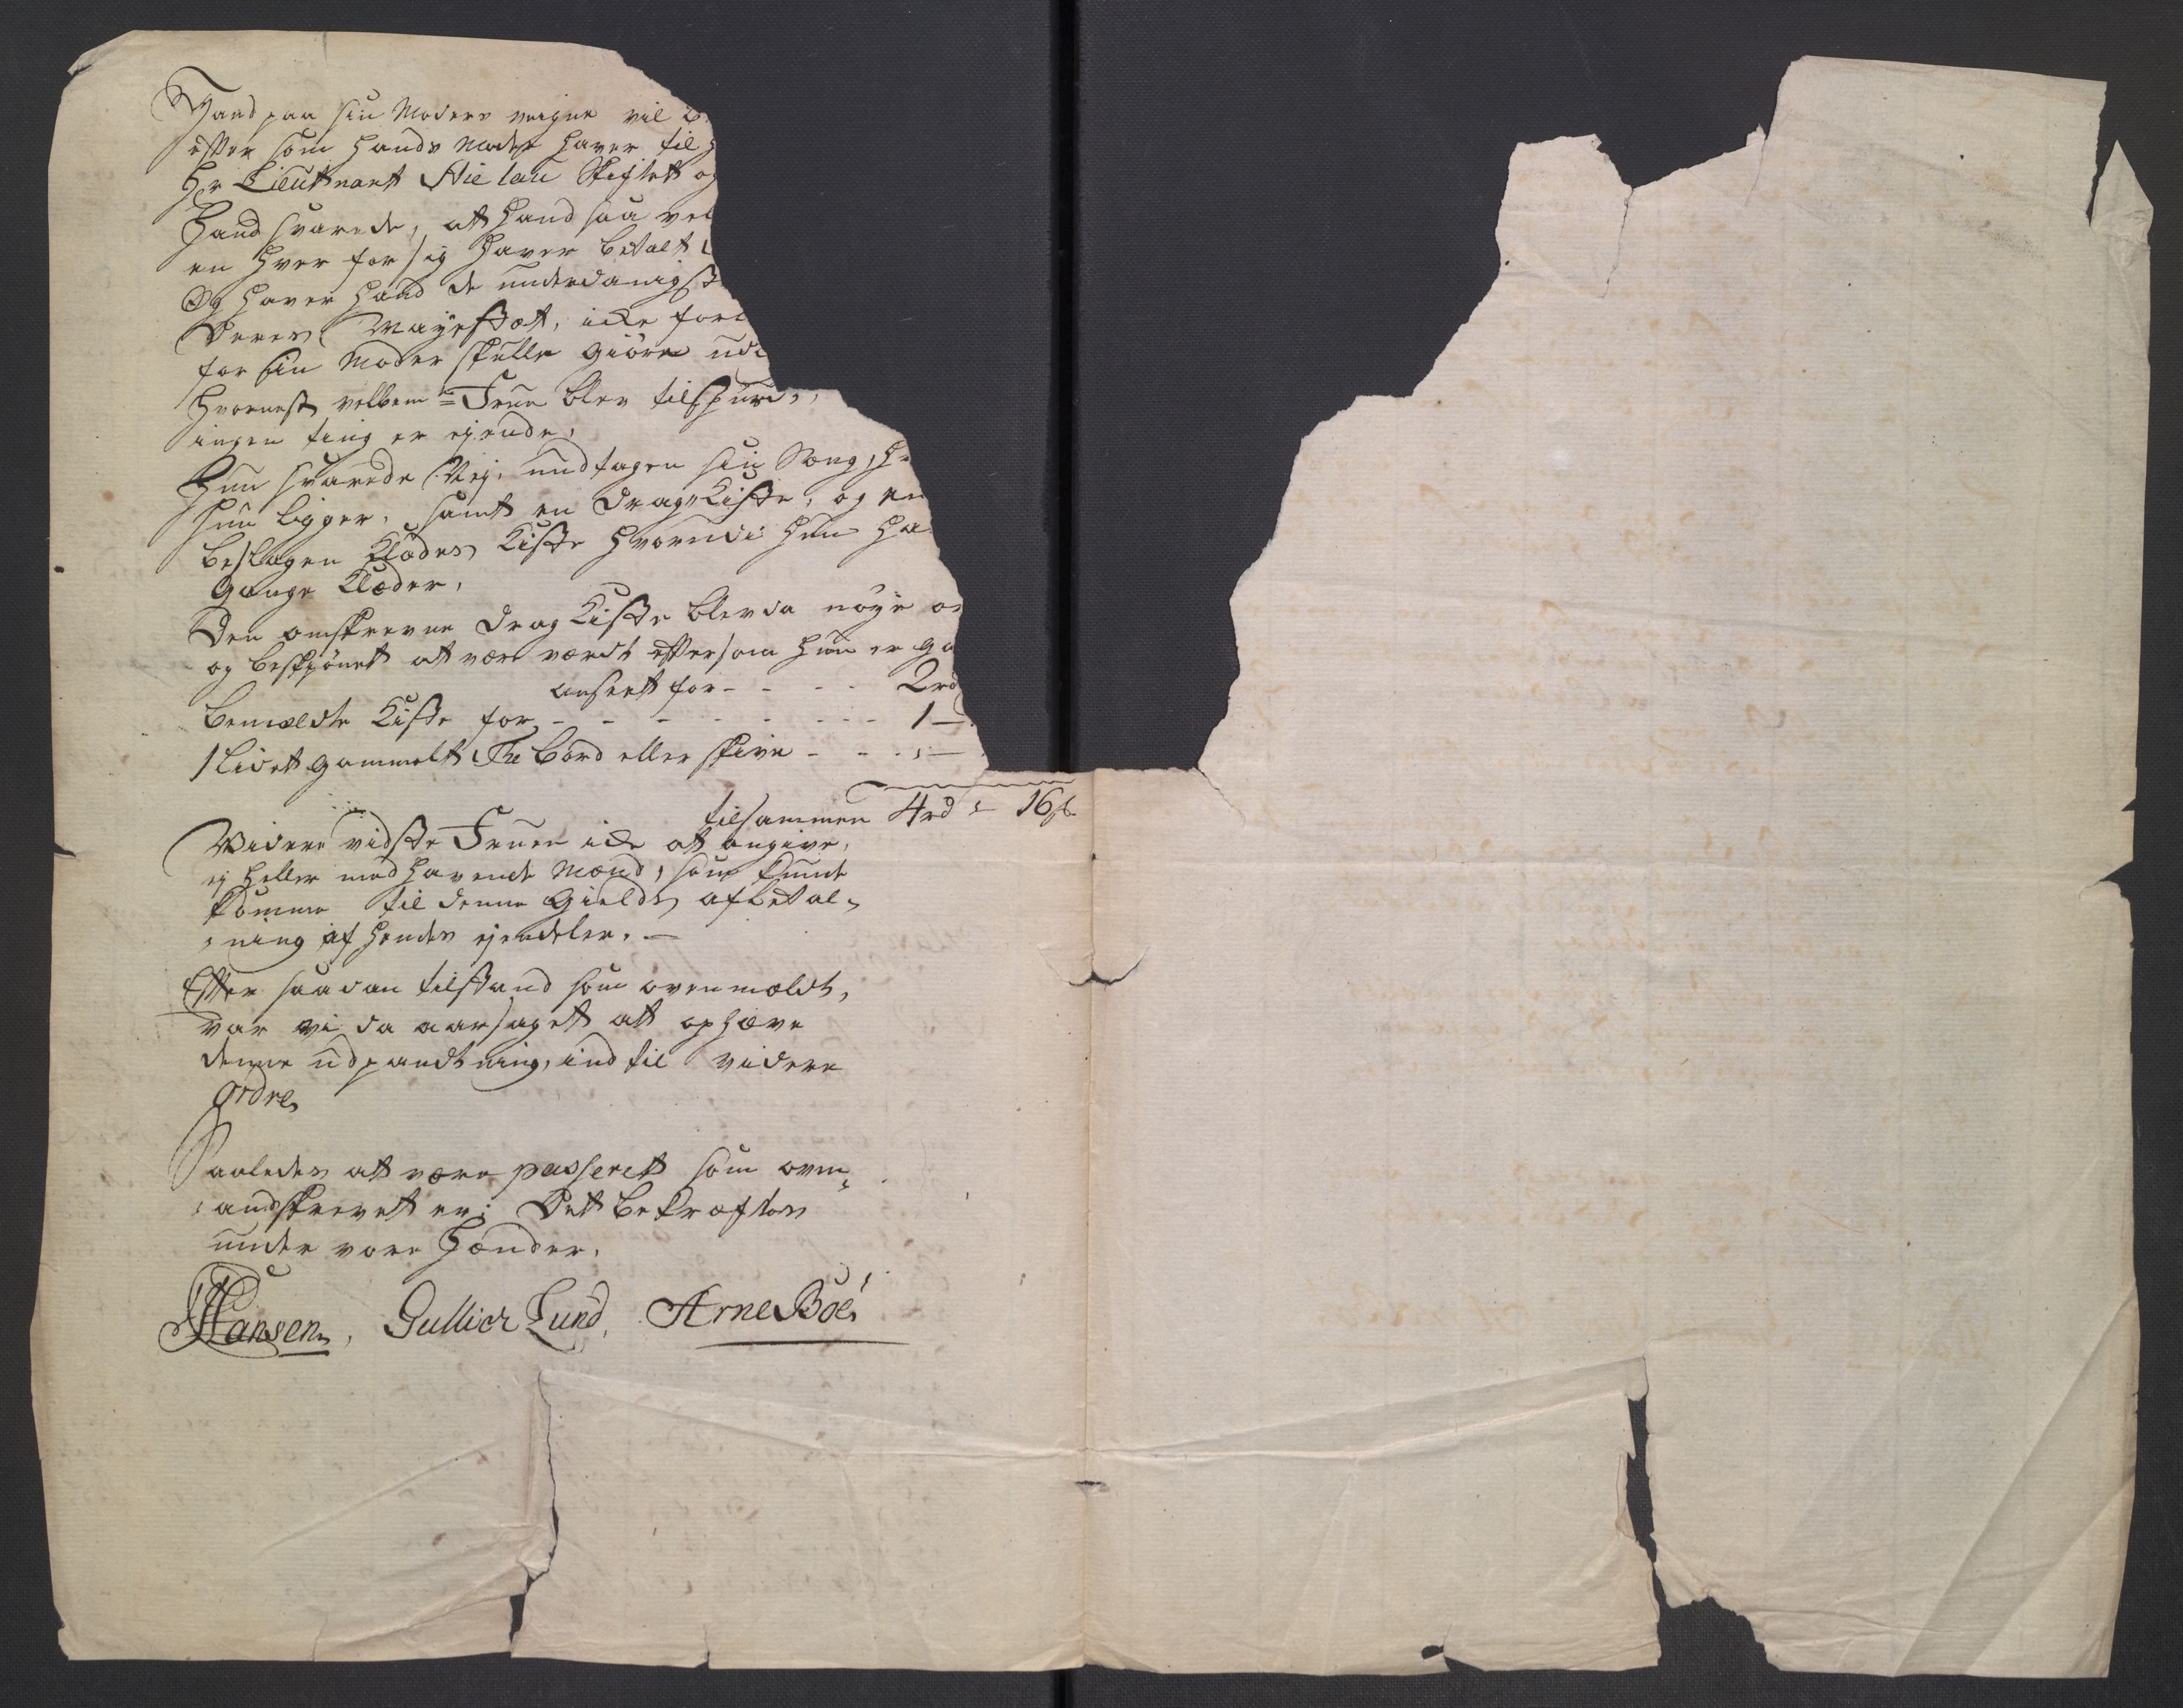 Hand paa sin Moders veigne vil
efter som hands Moder haver til
Hr Lieutnant Stie lau Skiftet og
Hand svarede, at hand saa vel
en hver for sig haver betalt
Og haver hand de underdanigst
Deres Mayestæt, icke for
for sin Moder skulle giøre ud
Hvornest velbem:te Frue blev tilspurdt,
ingen ting er ejende,
Hun svarede Nej, undtagen sin Seng,
hun ligger, samt en DragKiste, og en
beslagen Klædes Kiste hvorudi hun ha
Gange Klæder,
Den omskrevne Drag Kiste blev da nøye
og beskiønnet at være værdt efftersom hun er ga
anseet for - - - - 2rd
bemælte Kiste for - - - - - - - 1 —
1 Lidet gammelt The bord eller skive - - - , —
tilsammen 4rd „ 16s
Videre vidste Fruen icke at angive,
ej heller medhavende Mænd, som kunde
komme til denne Gields afbetal-
ning af hendes ejendeler. —
Efter saadan tilstand som ovenmeldt,
var vi da aarsaget at ophæve
denne udpandtning, ind til videre
Ordre,
Saaledes at være passeret som oven-
andskrevet er; Det bekræftes
under vore Hænder,
Hansen, Gullich Lund, Arne Böe,